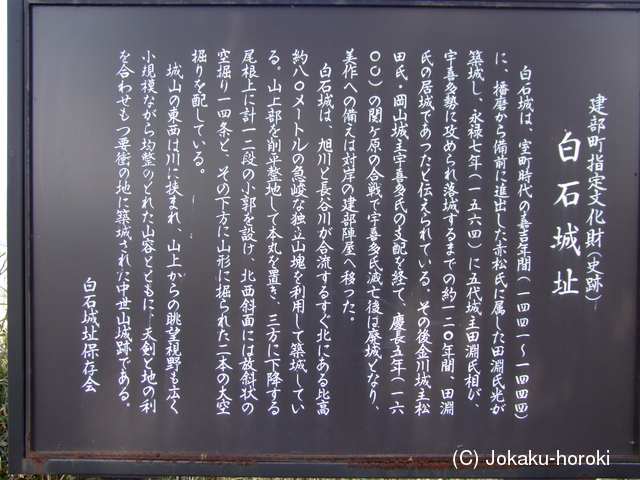 建部町指定文化財(史跡)
白石城址
白石城は、室町時代の嘉吉年間(一四四一～一四四四)
に、播磨から備前に進出した赤松氏に属した田淵氏光が
築城し、永禄七年(一五六四)に五代城主田淵氏相が、
宇喜多勢に攻められ落城するまでの約一二〇年間、田淵
氏の居城であったと伝えられている。その後金川城主松
田氏・岡山城主宇喜多氏の支配を経て、慶長五年(一六
〇〇)の関ヶ原の合戦で宇喜多氏滅亡後は廃城となり、
美作への備えは対岸の建部陣屋へ移った。
白石城は、旭川と長谷川が合流するすぐ北にある比高
約八〇メートルの急峻な独立山塊を利用して築城してい
る。山上部を削平整地して本丸を置き、三方に下降する
尾根上に計一二段の小郭を設け、北西斜面には放斜状の
空掘り一四条と、その下方に山形に掘られた二本の大空
掘りを配している。
城山の東西は川に挟まれ、山上からの眺望視野も広く
小規模ながら均整のとれた山容とともに、天剣と地の利
を合わせもつ要衝の地に築城された中世山城跡である。
白石城址保存会
(C) Jokaku-horoki